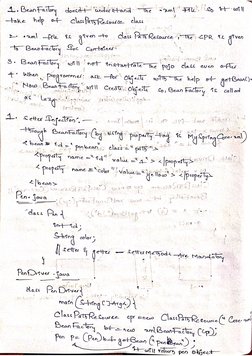 1. BeanFactory doesn't understand the .xml file. So it will
take help of ClassPathResource class
2. .xml file is given to ClassPathResource, the CPR is given
to BeanFactory IoC Container.
3. BeanFactory will not instantiate the pojo class even after
4. When programmer ask for Objects with the help of getBean()
Now BeanFactory will Create Objects So, BeanFactory is called
as lazy
1. Setter Injection: —
through BeanFactory (by using property-tag is MySpringCore.xml)
<bean id="penbean" class="
<property name="id" value="1"> </property>
<property name="color" value="yellow"> </property>
</bean>
Pen.java
class Pen {
int id;
String color;
// setter & getter — setter methods are Mandatory
}
PenDriver.java
class PenDriver {
main (String[] args) {
ClassPathResource cpr = new ClassPathResource("
BeanFactory bf = new xmlBeanFactory(cpr);
Pen p = (Pen) bf.getBean("penbean");
It will return pen object